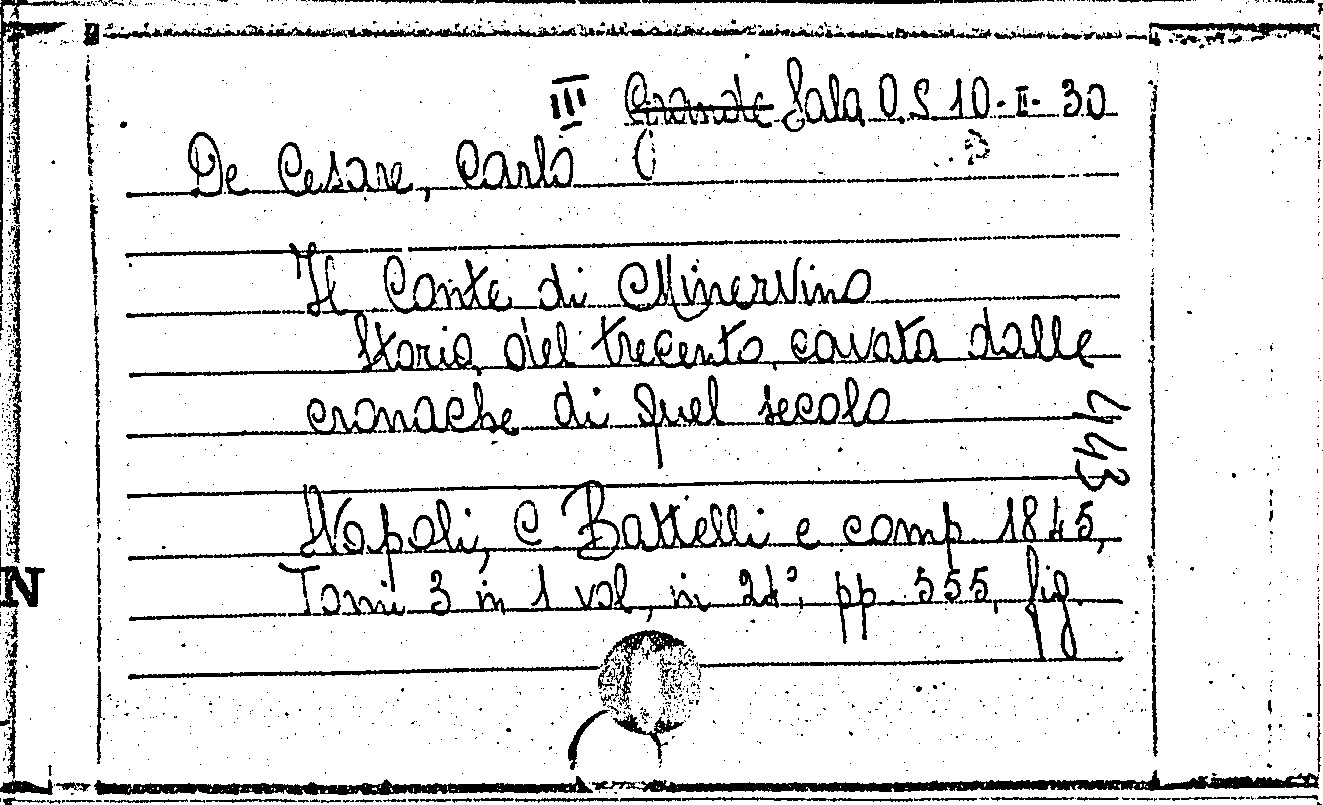 III Grande Sala O.S. 10-II-30
De Cesare, Carlo
Il Conte di Minervino
Storia del trecento cavata dalle
cronache di quel secolo
443
Napoli, C Battelli e comp. 1845,
Tomi 3 in 1 vol, in 24°, pp. 555, fig.
N